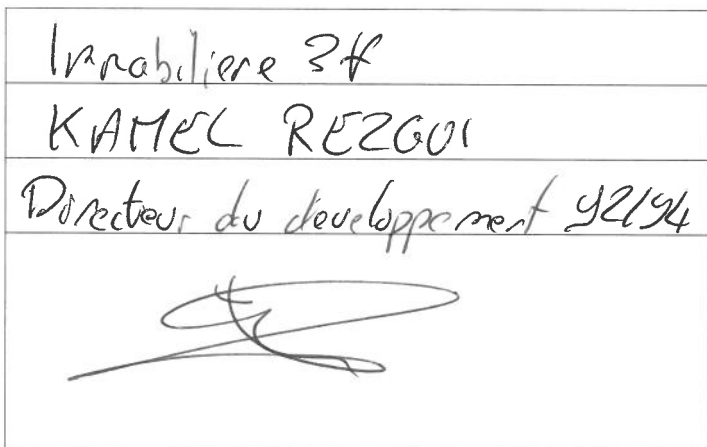 Immobiliere 3f
KAMEL REZGUI
Directeur du developpement 92/94